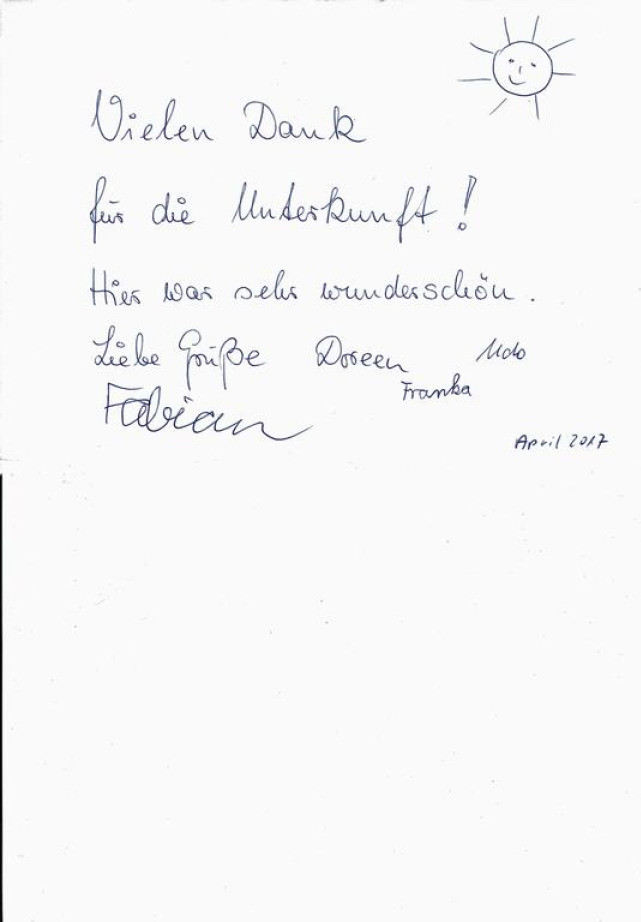 Vielen Dank
für die Unterkunft!
Hier war sehr wunderschön.
Liebe Grüße Doreen Udo
Franka
Fabian
April 2017